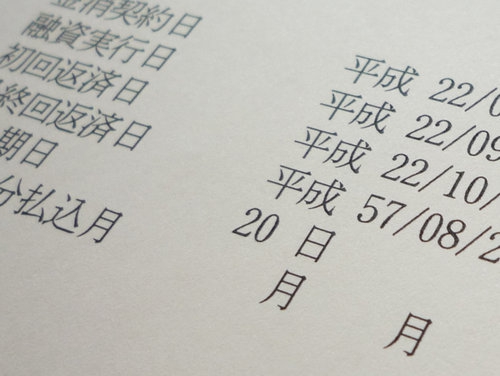 金消契約日 平成 22/0
融資実行日 平成 22/09
初回返済日 平成 22/10/
終回返済日 平成 57/08/2
期日 20 日
分払込月 月 月